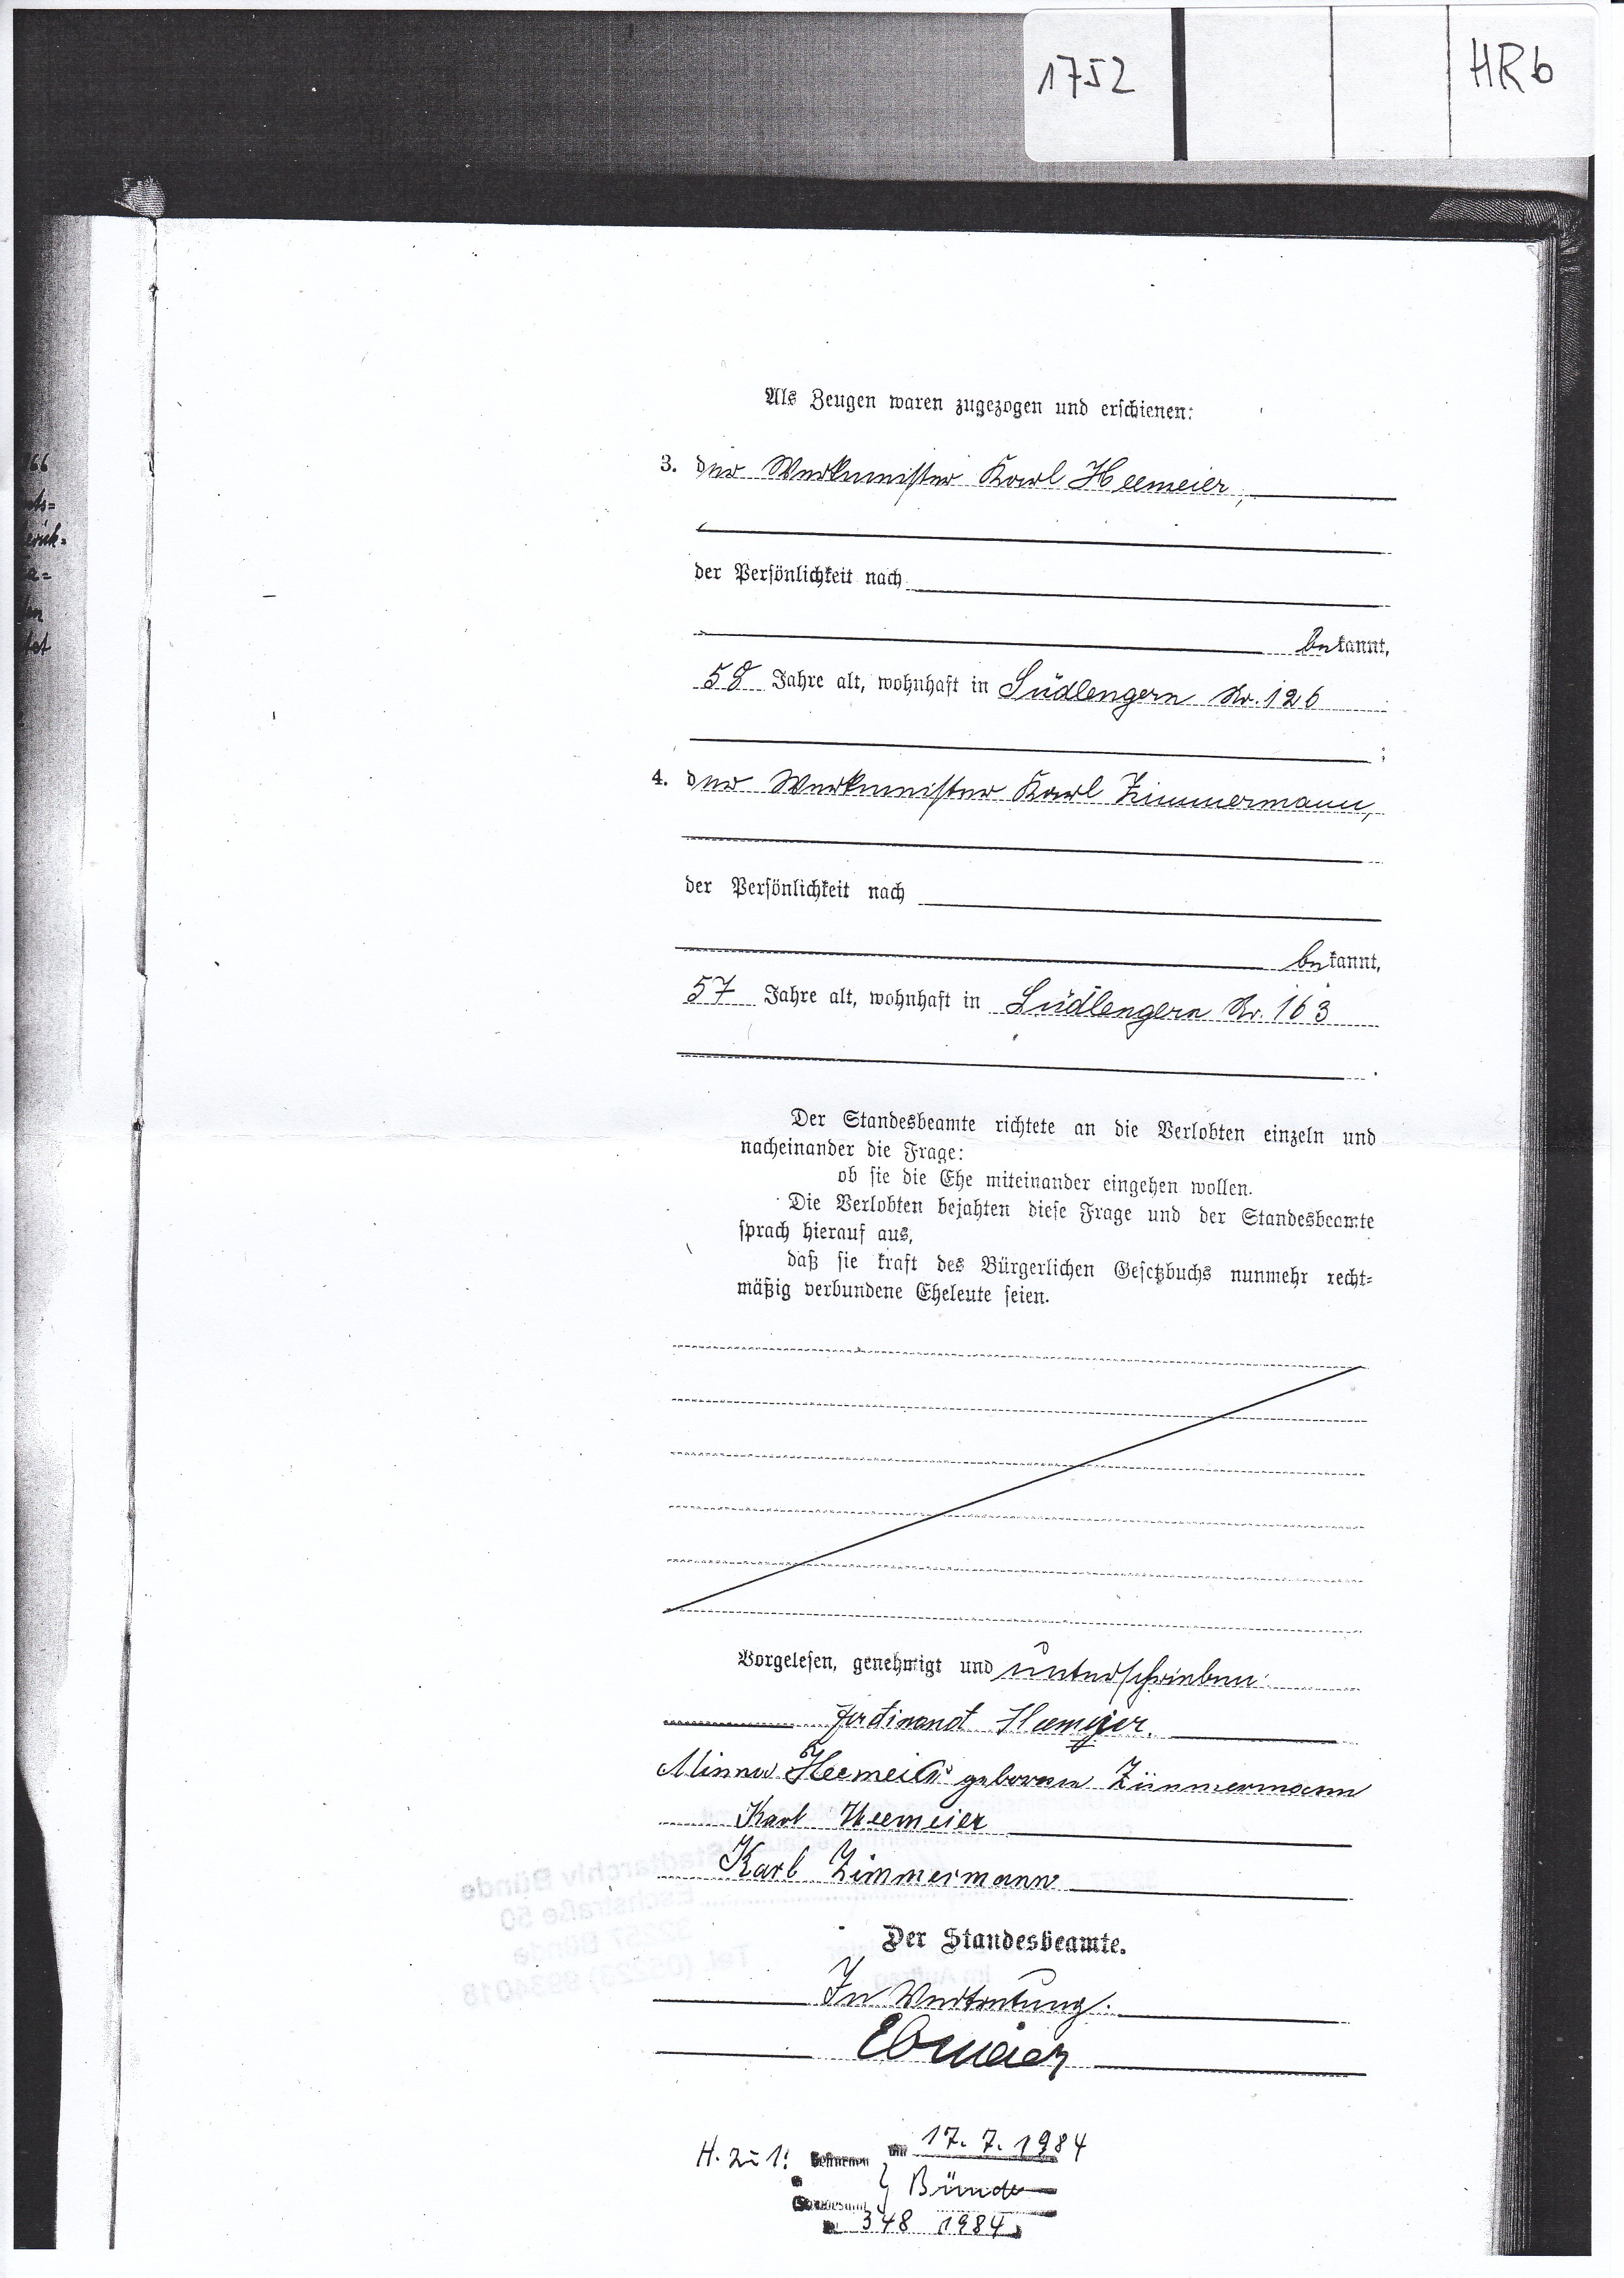 1752 HRb
Als Zeugen waren zugezogen und erschienen:
3. der Werkmeister Karl Heemeier,
der Persönlichkeit nach
bekannt,
58 Jahre alt, wohnhaft in Südlengern Nr. 126
;
4. der Werkmeister Karl Zimmermann,
der Persönlichkeit nach
bekannt,
57 Jahre alt, wohnhaft in Südlengern Nr. 163
.
Der Standesbeamte richtete an die Verlobten einzeln und
nacheinander die Frage:
ob sie die Ehe miteinander eingehen wollen.
Die Verlobten bejahten diese Frage und der Standesbeamte
sprach hierauf aus,
daß sie kraft des Bürgerlichen Gesetzbuchs nunmehr recht-
mäßig verbundene Eheleute seien.
Vorgelesen, genehmigt und unterschrieben:
Ferdinand Heemeier.
Minna Heemeier geborene Zimmermann
Karl Heemeier
Karl Zimmermann
Stadtarchiv Bünde
Eschstraße 50
32257 Bünde
Tel. (05223) 9934018
Der Standesbeamte.
In Vertretung.
Ebmeier
H. zu 1: am 17. 7. 1984
Bünde
348 1984